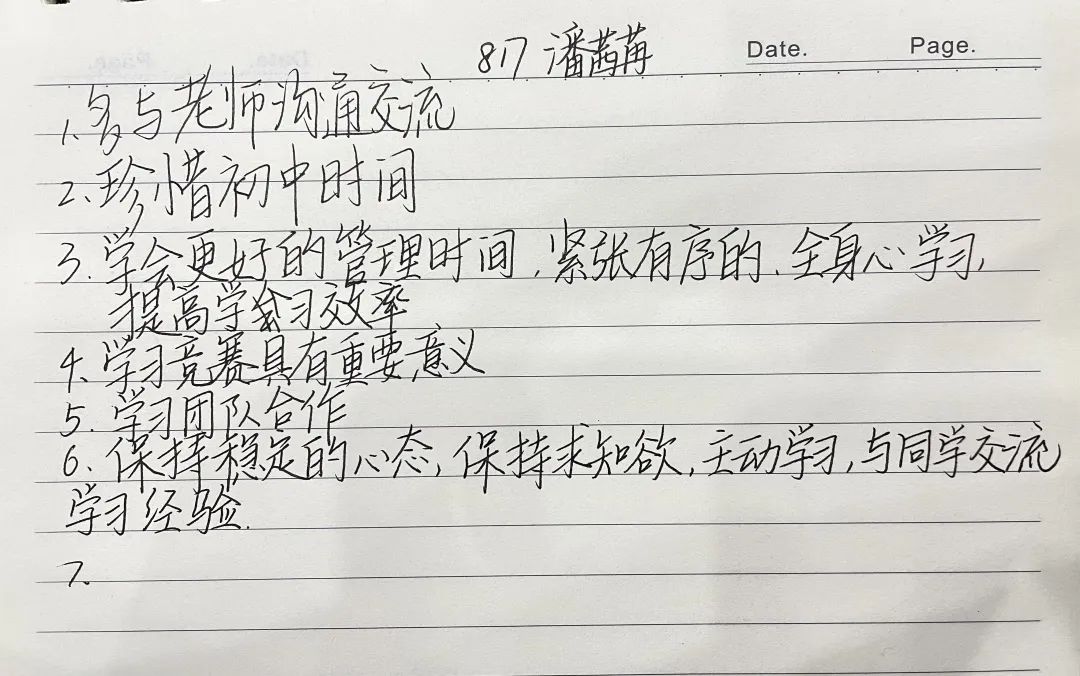 817 潘茜苒
Date.
Page.
1. 多与老师沟通交流
2. 珍惜初中时间
3. 学会更好的管理时间,紧张有序的、全身心学习,
提高学习效率
4. 学习竞赛具有重要意义
5. 学习团队合作
6. 保持稳定的心态,保持求知欲,主动学习,与同学交流
学习经验.
7.